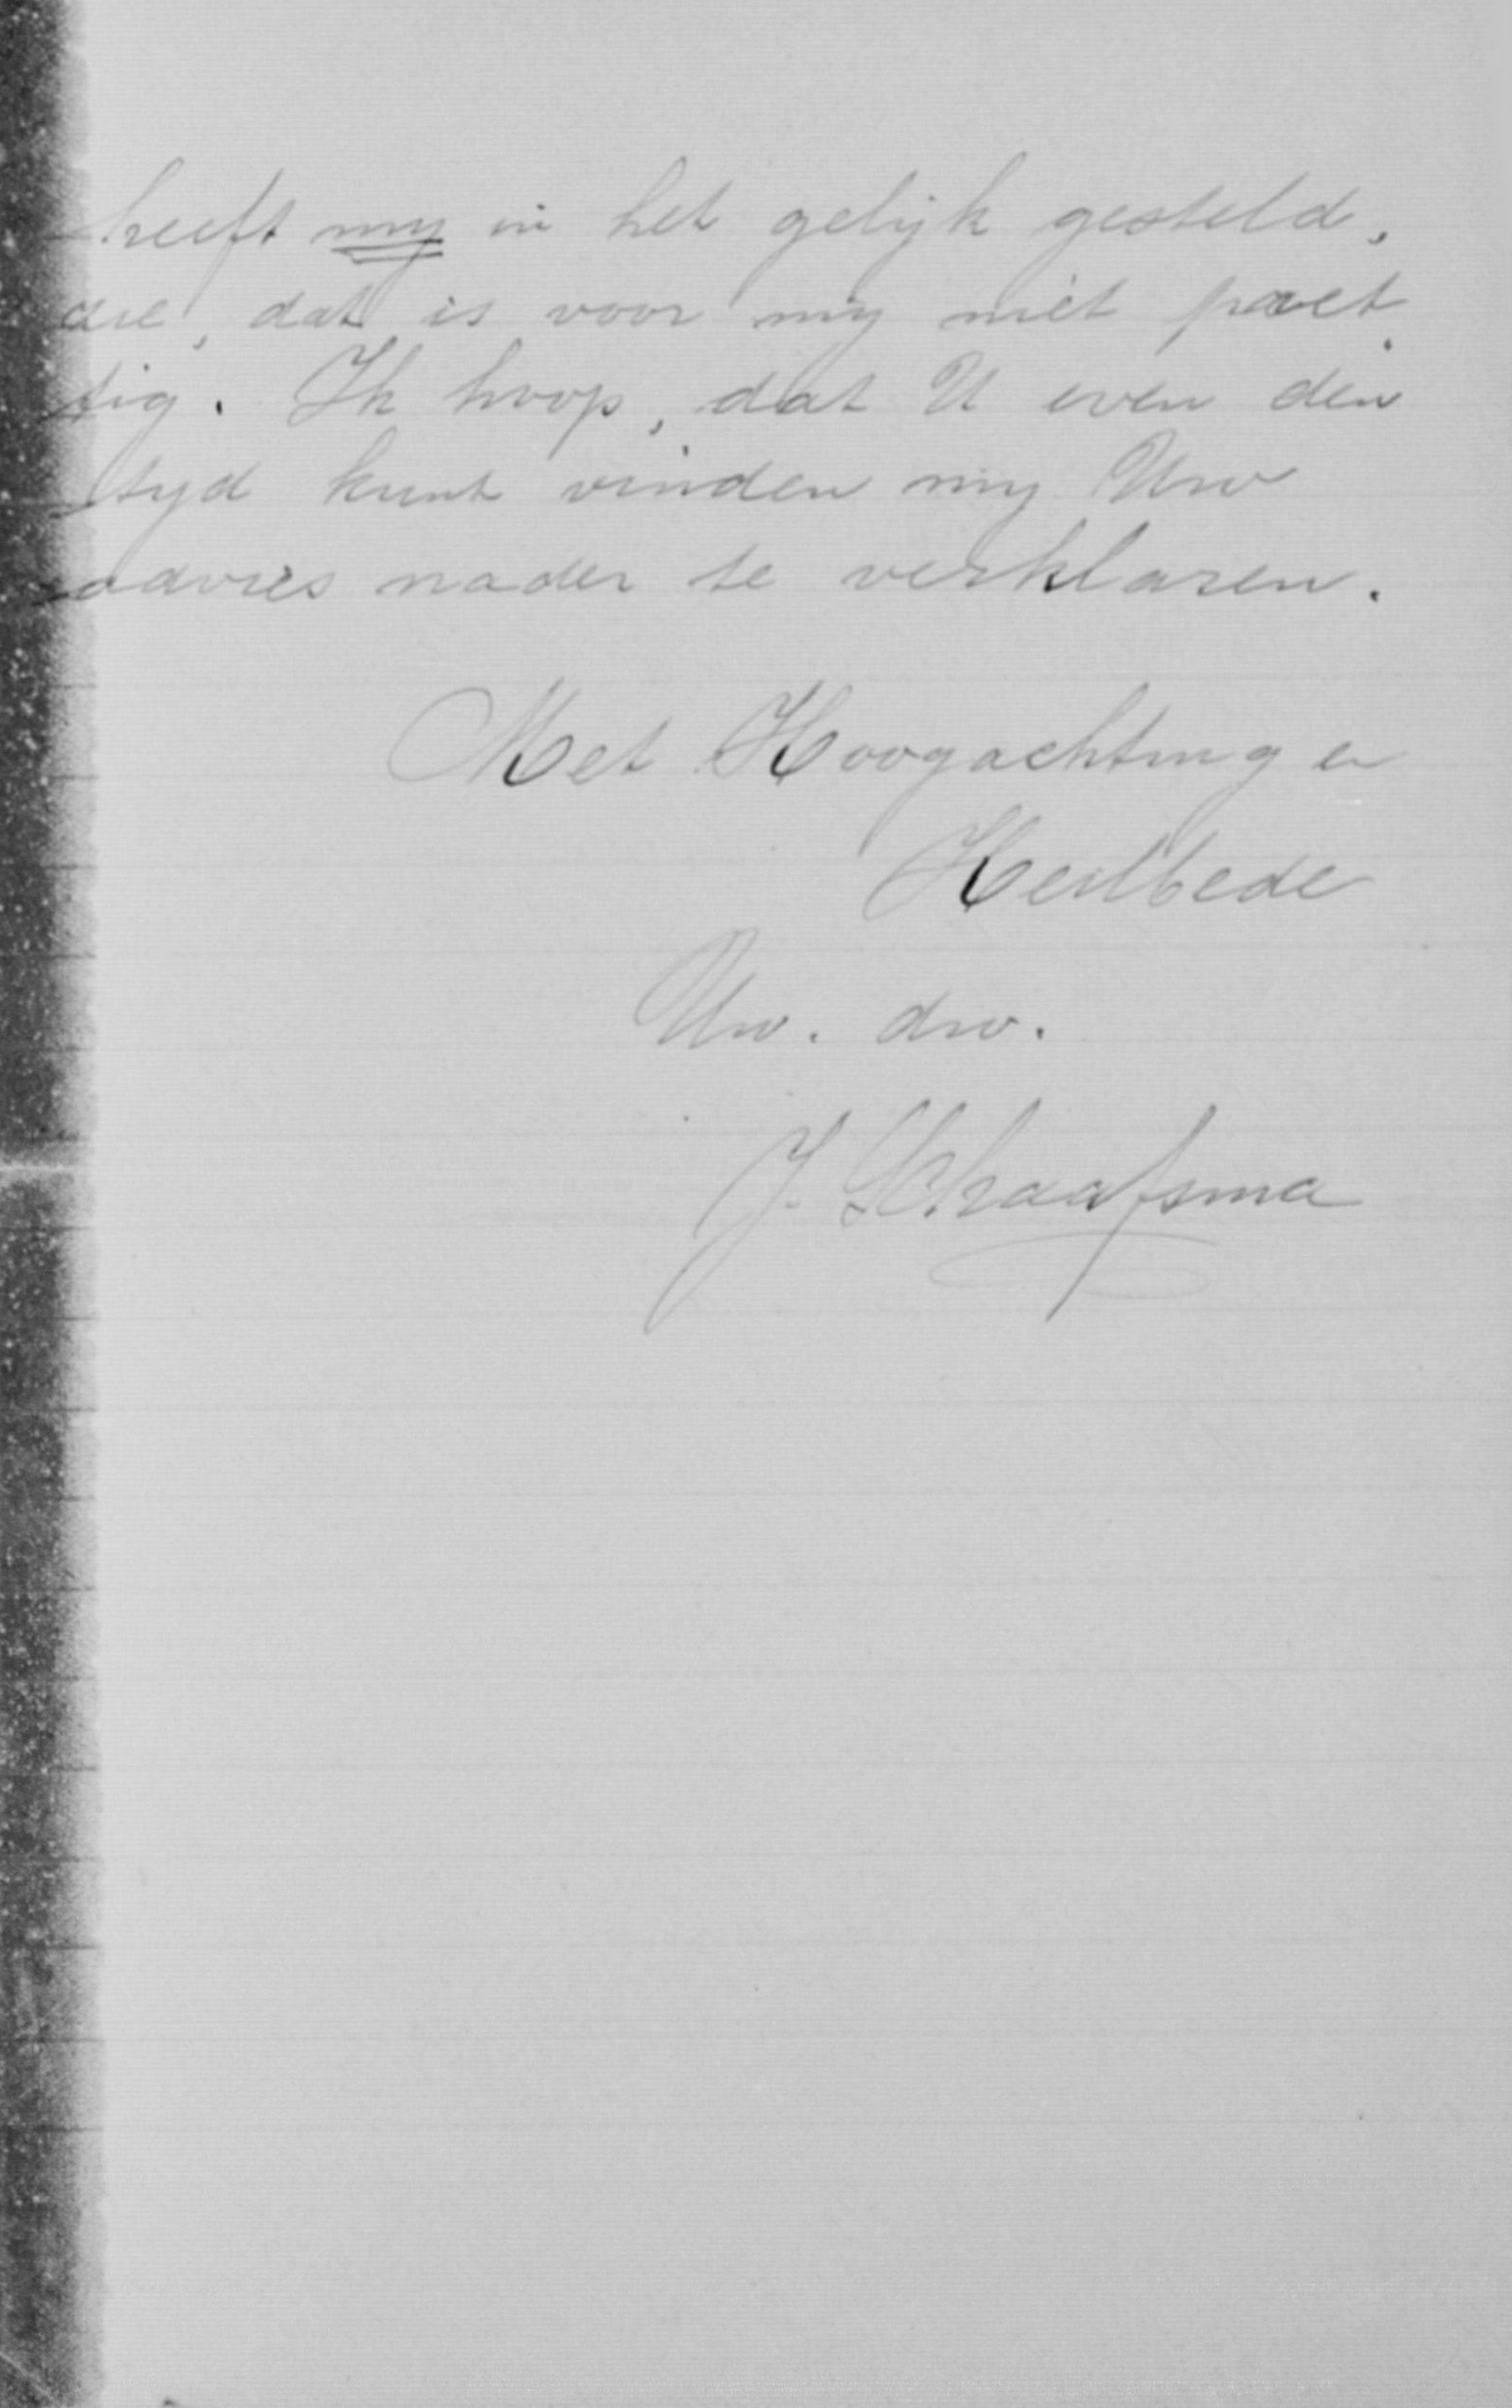 heeft my in het gelijk gesteld,
dat is voor my niet
tig. Ik hoop, dat U even den
tyd kunt vinden my Uw
advies nader te verklaren.
Met Hoogachting en
Heilbede
Uw. dw.
J. Schaafsma